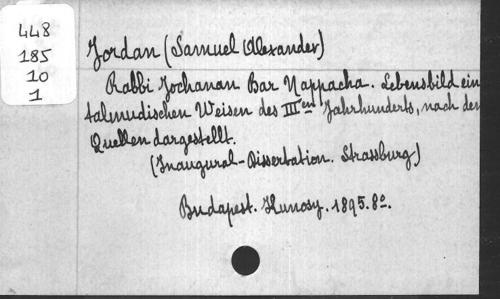 448
185
10
1
Jordan (Samuel Alexander)
Rabbi Jochanan Bar Nappacha. Lebensbild ein
talmudischen Weisen des IIIen Jahrhunderts, nach den
Quellen dargestellt.
(Inaugural-Dissertation. Strassburg)
Budapest. Hunosy. 1895. 8o.